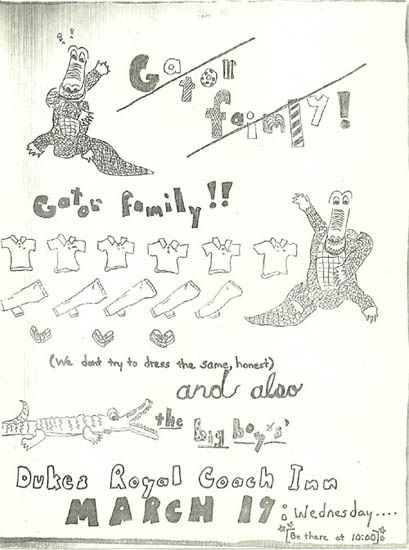 Gator
faimly!
Gator family!!
(We dont try to dress the same, honest)
and also
the big boys'
Dukes Royal Coach Inn
MARCH 19: Wednesday....
[Be there at 10:00]